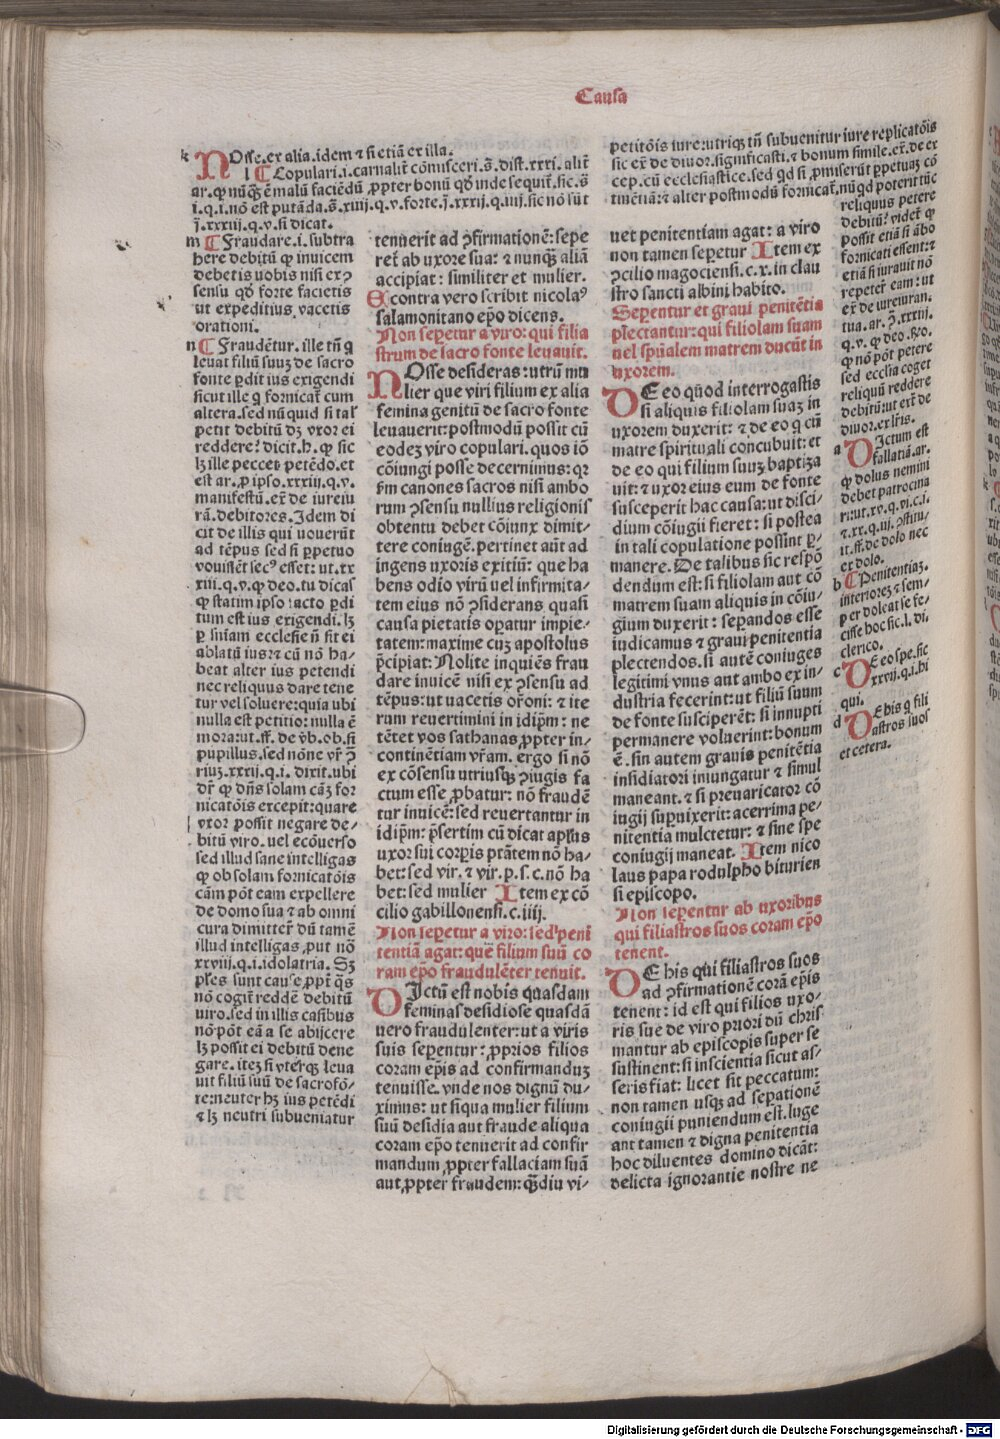 Causa
k NOsse.ex alia.idem ⁊ si etiā ex illa.
l Copulari.i.carnalit̄ cōmisceri.s̄.dist.xxxi.alit̄
ar.ꝙ nūq̄ȝ ē malū faciēdū ꝓpter bonū qd̄ inde sequit̄.sic.s̄
i.q.i.nō est putāda.s̄.xiiij.q.v.forte.j.xxxij.q.iiij.sic nō sūt
j.xxxiij.q.v.si dicat.
m Fraudare.i.subtra
here debitū ꝙ inuicem
debetis uobis nisi ex ↄ
sensu qd̄ forte facietis
ut expeditius vacetis
orationi.
n Fraudētur.ille tn̄ q
leuat filiū suuȝ de sacro
fonte ꝑdit ius exigendi
sicut ille q fornicat̄ cum
altera.sed nūquid si tal̓
petit debitū dȝ vxor ei
reddere? dicit.h.ꝙ sic
lȝ ille peccet petēdo.et
est ar.ꝓ ipso.xxxiij.q.v.
manifestū.ex̄ de iureiu
rā.debitores.Idem di
cit de illis qui uouerūt
ad tēpus sed si ꝑpetuo
vouissēt sec⁹ esset: ut.xx
xiij.q.v.ꝙ deo.tu dicas
ꝙ statim ipso facto ꝑdi
tum est ius exigendi.lȝ
ꝑ sniam ecclesie n̄ sit ei
ablatū ius:⁊ cū nō ha-
beat alter ius petendi
nec reliquus dare tene
tur vel soluere:quia ubi
nulla est petitio:nulla ē
mora:ut.ff.de v̄b.ob.si
pupillus.sed nōne vr̄ ↄ̄
riuȝ.xxxij.q.i.dixit.ubi
dr̄ ꝙ dn̄s solam cāȝ for
nicatōis excepit:quare
vxor possit negare de-
bitū viro.uel ecōuerso
sed illud sane intelligas
ꝙ ob solam fornicatōis
cām pōt eam expellere
de domo sua ⁊ ab omni
cura dimitter̄ dū tamē
illud intelligas ꝓut nō
xxviii.q.i.idolatria.Sȝ
ples sunt cause ꝓpt̄ q̄s
nō cogit̄ reddē debitū
uiro.sed in illis casibus
nō pōt eā a se abijcere
lȝ possit ei debitū dene
gare.iteȝ si vterqȝ leua
uit filiū suū de sacro fō-
te:neuter hȝ ius petēdi
⁊ lȝ neutri subueniatur
tenuerit ad ↄfirmationē: sepe
ret̄ ab uxore sua: ⁊ nunqȝ aliā
accipiat: similiter et mulier.
Econtra vero scribit nicola⁹
salamonitano ep̄o dicens.
Non sepetur a viro: qui filia
strum de sacro fonte leuauit.
NOsse desideras: utrū mu
lier que viri filium ex alia
femina genitū de sacro fonte
leuauerit: postmodū possit cū
eodeȝ viro copulari. quos iō
cōiungi posse decernimus: qȝ
ẜm canones sacros nisi ambo
rum ↄsensu nullius religionis
obtentu debet cōiunx dimit-
tere coniugē. pertinet aūt ad
ingens uxoris exitiū: que ha
bens odio virū uel infirmita-
tem eius nō ↄsiderans quasi
causa pietatis oꝑatur impie-
tatem: maxime cuȝ apostolus
p̄cipiat: Nolite inquiēs frau
dare inuicē nisi ex ↄsensu ad
tēpus: ut uacetis or̄oni: ⁊ ite
rum reuertimini in idip̄m: ne
tētet vos sathanas ꝓpter in-
continētiam vr̄am. ergo si nō
ex cōsensu utriusqȝ ↄiugis fa
ctum esse ꝓbatur: nō fraudē
tur inuicē: sed reuertantur in
idip̄m: p̄sertim cū dicat apl̄us
uxor sui corꝑis ptātem nō ha-
bet: sed vir. ⁊ vir. p. s. c. nō ha
bet: sed mulier Item ex cō
cilio gabillonensi. c. iiij.
Non sepetur a viro: sed peni
tentiā agat: que filium suū co
ram ep̄o fraudulēter tenuit.
DIctū est nobis quasdam
feminas desidiose quasdā
uero fraudulenter: ut a viris
suis sepentur: ꝓprios filios
coram ep̄is ad confirmanduȝ
tenuisse. vnde nos dignū du-
ximus: ut siqua mulier filium
suū desidia aut fraude aliqua
coram ep̄o tenuerit ad confir
mandum ꝓpter fallaciam suā
aut ꝓpter fraudem: qȝdiu vi-
petitōis iure:utriqȝ tn̄ subuenitur iure replicatōis
sic ex̄ de diuor.significasti.⁊ bonum simile.ex̄.de ex
cep.cū ecclesiastice.sed qd si ꝓmiserūt ꝑpetuaȝ cō
tinētiā:⁊ alter postmodū fornicat̄.nūqd poterit tūc
reliquus petere
debitū? videt̄ ꝙ
possit etiā si ābo
fornicati essent:⁊
etiā si iurauit nō
repeter̄ eam:ut
ex̄ de iureiuran.
tua.ar.ↄ̄.xxxij.
q.v.ꝙ deo.sȝo.
ꝙ nō pōt petere
sed ecclia coget
reliquū reddere
debitū:ut ex̄t de
diuor.ex lr̄is.
a DIctum est
fallatiā.ar.
ꝙ dolus nemini
debet patrocina
ri:ut.xv.q.vi.c.i.
⁊.xx.q.iij.ↄstitu-
it.ff.de dolo nec
ex dolo.
b Penitentiaȝ.
interioreȝ ⁊ sem-
per doleat se fe-
cisse hoc sic.l.di.
clerico.
c DE eo spe.sic
xxvij.q.i.hi
qui.
d DE his q fili
astros suos
et cetera.
uet penitentiam agat: a viro
non tamen sepetur Item ex
ↄcilio magociensi. c. x. in clau
stro sancti albini habito.
Sepentur et graui penitētia
plectantur: qui filiolam suam
uel spūalem matrem ducūt in
uxorem.
DE eo quod interrogastis
si aliquis filiolam suaȝ in
uxorem duxerit: ⁊ de eo q cū
matre spirituali concubuit: et
de eo qui filium suuȝ baptiza
uit: ⁊ uxor eius eum de fonte
susceperit hac causa: ut disci-
dium cōiugii fieret: si postea
in tali copulatione possint ꝑ-
manere. De talibus sic respō
dendum est: si filiolam aut cō
matrem suam aliquis in cōiu-
gium duxerit: sepandos esse
iudicamus ⁊ graui penitentia
plectendos. si autē coniuges
legitimi vnus aut ambo ex in-
dustria fecerint: ut filiū suum
de fonte susciperēt: si innupti
permanere voluerint: bonum
ē. sin autem grauis penitētia
insidiatori iniungatur ⁊ simul
maneant. ⁊ si preuaricator cō
iugij supuixerit: acerrima pe-
nitentia mulctetur: ⁊ sine spe
coniugij maneat. Item nico
laus papa rodulpho biturien
si episcopo.
Non sepentur ab uxoribus
qui filiastros suos coram ep̄o
tenent.
DE his qui filiastros suos
ad ↄfirmationē corā ep̄is
tenent: id est qui filios uxo-
ris sue de viro priori dū chris
mantur ab episcopis super se
sustinent: si inscientia sicut as-
seris fiat: licet sit peccatum:
non tamen usqȝ ad sepationē
coniugii puniendum est. luge
ant tamen ⁊ digna penitentia
hoc diluentes domino dicāt:
delicta ignorantie nostre ne
Digitalisierung gefördert durch die Deutsche Forschungsgemeinschaft - DFG